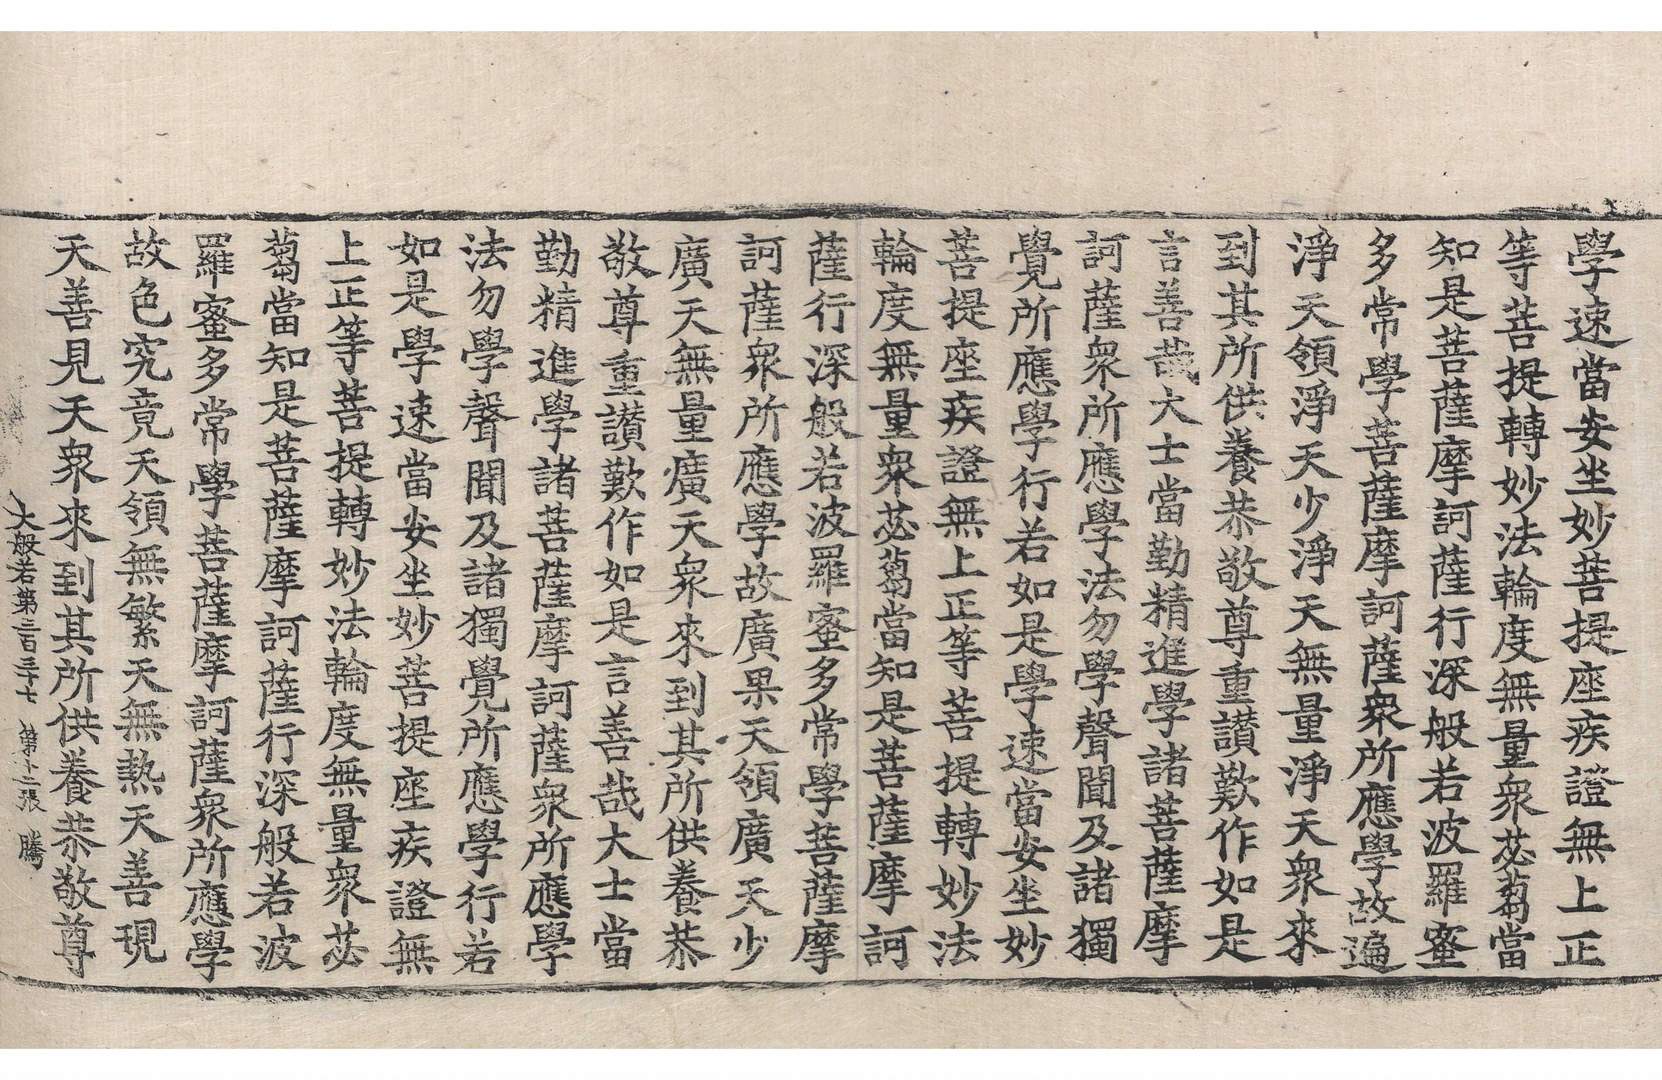 學速當安坐妙菩提座疾證無上正
等菩提轉妙法輪度無量衆苾蒭當
知是菩薩摩訶薩行深般若波羅蜜
多常學菩薩摩訶薩衆所應學故遍
淨天領淨天少淨天無量淨天衆來
到其所供養恭敬尊重讃歎作如是
言善哉大士當勤精進學諸菩薩摩
訶薩衆所應學法勿學聲聞及諸獨
覺所應學行若如是學速當安坐妙
菩提座疾證無上正等菩提轉妙法
輪度無量衆苾蒭當知是菩薩摩訶
薩行深般若波羅蜜多常學菩薩摩
訶薩衆所應學故廣果天領廣天少
廣天無量廣天衆來到其所供養恭
敬尊重讃歎作如是言善哉大士當
勤精進學諸菩薩摩訶薩衆所應學
法勿學聲聞及諸獨覺所應學行若
如是學速當安坐妙菩提座疾證無
上正等菩提轉妙法輪度無量衆苾
蒭當知是菩薩摩訶薩行深般若波
羅蜜多常學菩薩摩訶薩衆所應學
故色究竟天領無繁天無熱天善現
天善見天衆來到其所供養恭敬尊
大般若第三百三十七 第十二張 騰